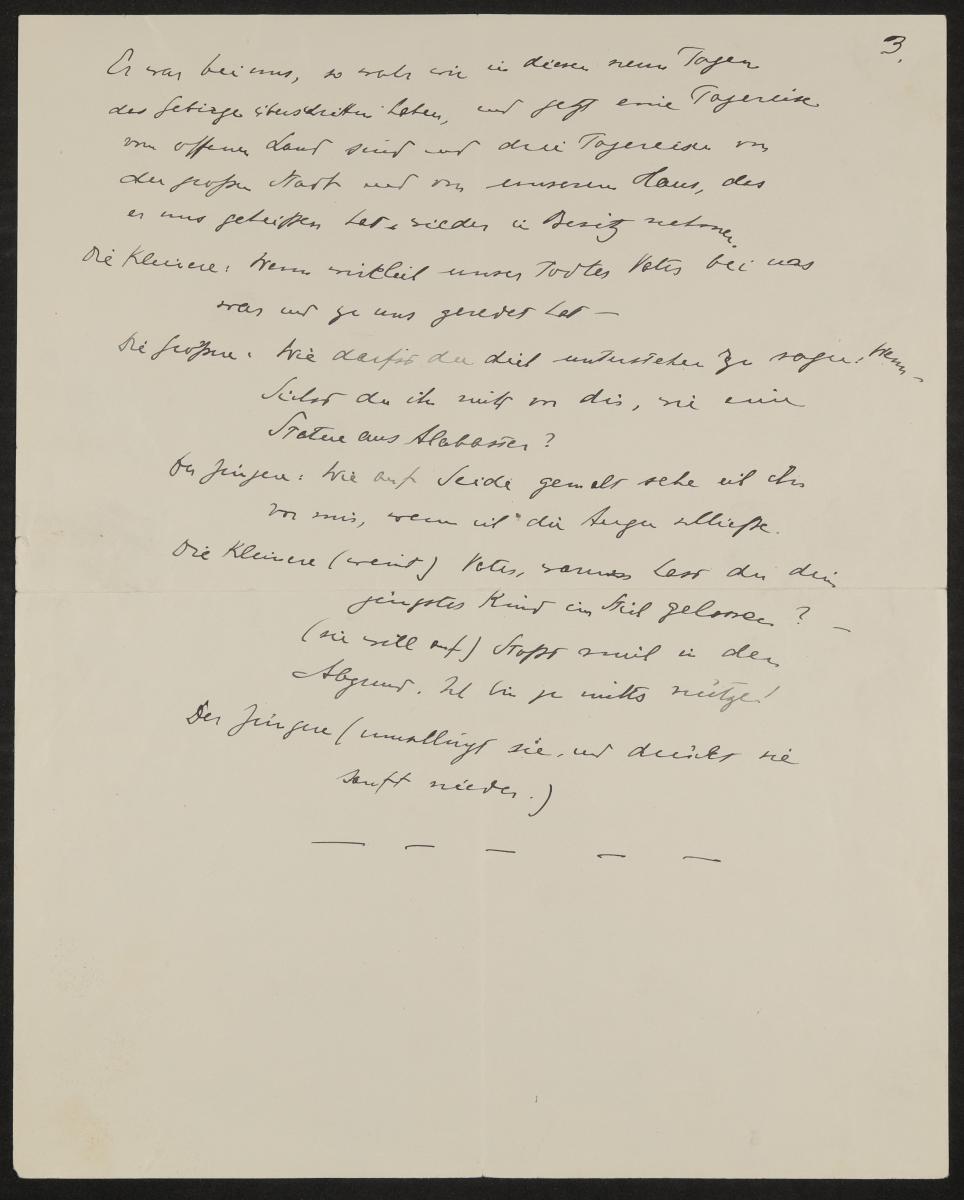 3.
Er war bei uns, so wahr wir in diesen neun Tagen
das Gebirge überschritten haben, und jetzt eine Tagereise
vom offenen Land sind und drei Tagereisen von
der grossen Stadt und von unserem Haus, das
er uns geheißen hat wieder in Besitz nehmen.
Die Kleinere: Wenn wirklich unser Todter Vater bei uns
war und zu uns geredet hat —
Die Größere: Wie darfst du dich unterstehen zu sagen: Wenn —
Siehst du ihn nicht vor dir, wie eine
Statue aus Alabaster?
Der Jüngere: Wie auf Seide gemalt sehe ich ihn
vor mir, wenn ich die Augen schließe.
Die Kleinere (weint) Vater, warum hast du dein
jüngstes Kind im Stich gelassen? —
(sie will auf) Stoßt mich in den
Abgrund. Ich bin zu nichts nütze!
Der Jüngere (umschlingt sie, und drückt sie
sanft nieder.)
— — — — —